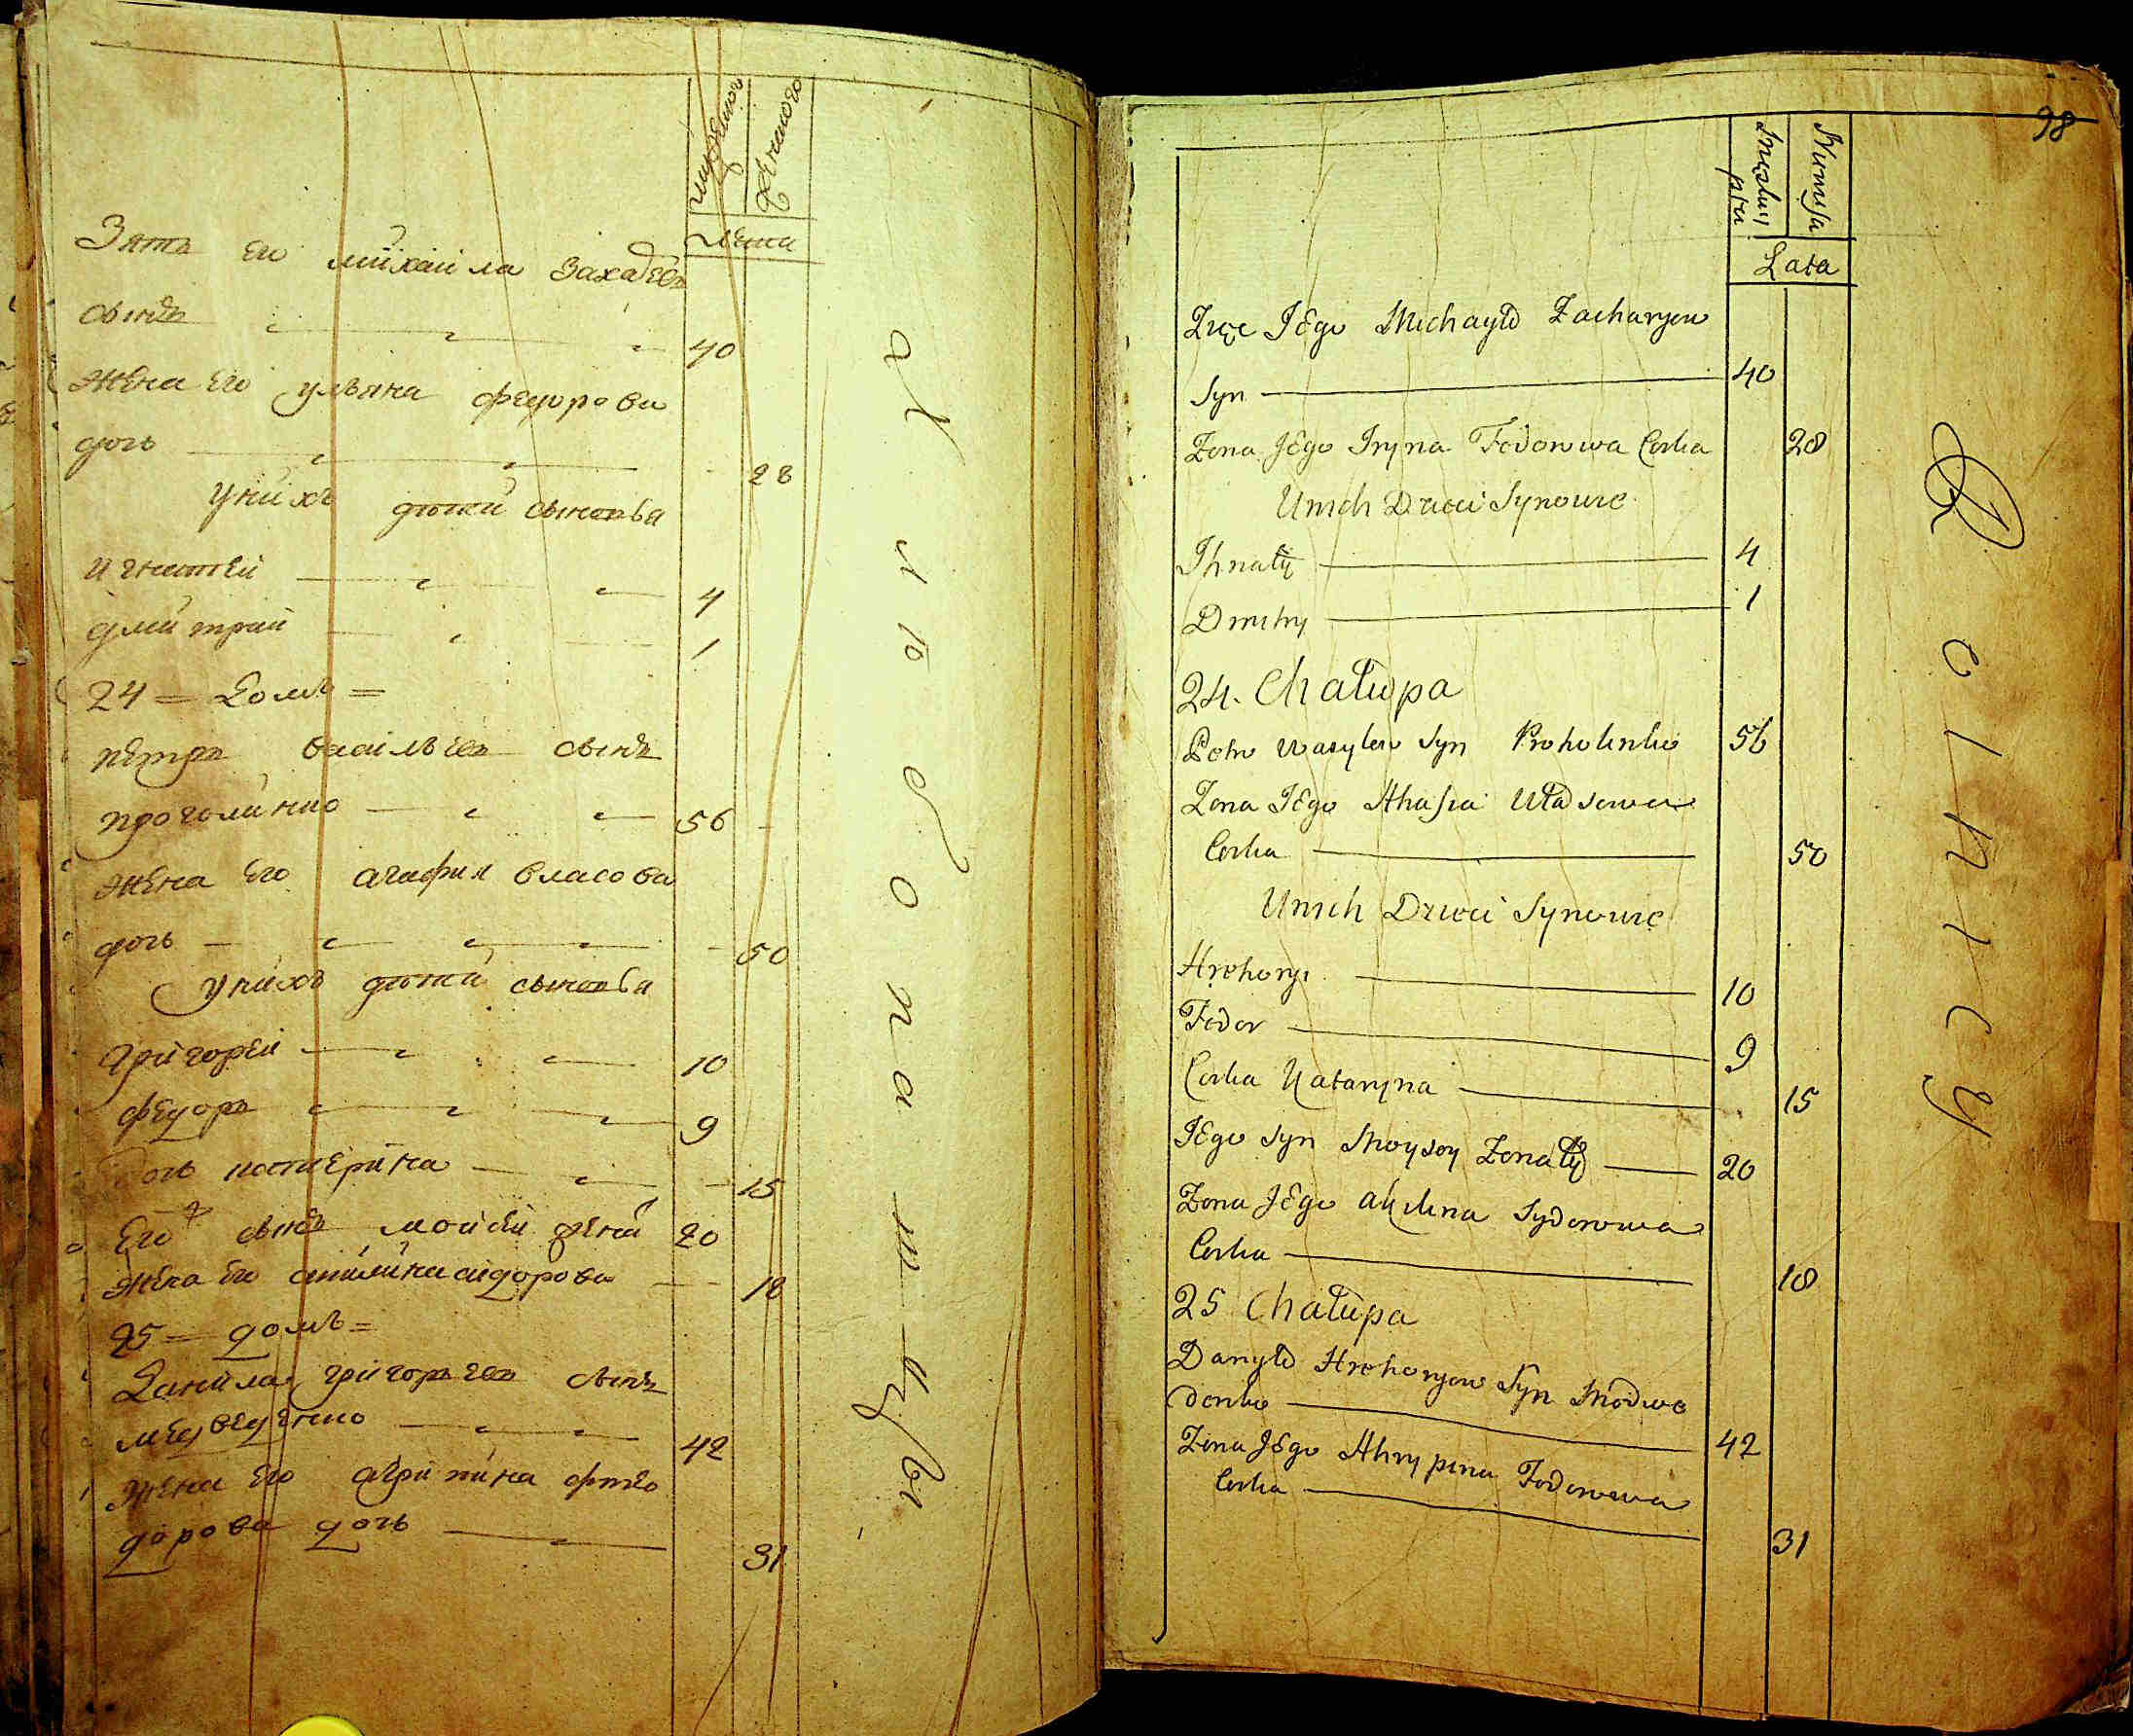 мужеска
женскаго
лета
Зять его михайла Захарьевъ
сынъ 40
жена его ульяна федорова
дочь 28
унихъ дети сыновья
игнатей 4
дмитрий 1
24 = домъ =
петръ васильевъ сынъ
проголенко 56
жена его агафия власова
дочь 50
унихъ дети сыновья
григорей 10
федоръ 9
дочь катерина 15
Его сынъ мойсей 20
жена его акилина сидорова 18
25 = домъ =
Данила григорьевъ сынъ
медведенко 42
жена его агрипина фтео
дорова дочь 31
хлѣбопашцы
98
Lata
Zięc Jego Michayło Zacharyew
Syn 40
Zona Jego Iryna Fedorowa Corka 28
Unich Dzieci Synowie
Ihnaty 4
Dmitry 1
24. Chałupa
Petro Wasylew Syn Proholenko 56
Zona Jego Ahafia Własowa
Corka 50
Unich Dzieci Synowie
Hrehory 10
Fedor 9
Corka Kataryna 15
Jego Syn Moysey Zonaty 20
Zona Jego Akilina Sydorowa
Corka 18
25 Chałupa
Danyło Hrehoryew Syn Medwe
denko 42
Zona Jego Ahrypina Fedorowa
Corka 31
Rolnicy